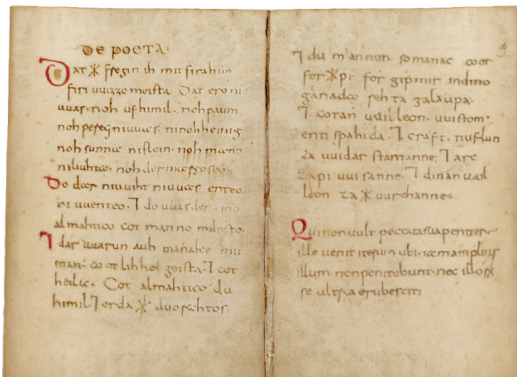 De poeta
Dat ᚷ fregin ih mit firahim
firi uuizzo meista. Dat ero ni
uuas. noh ufhimil. noh paum
noh pereg ni uuas. ni nohheinig
noh sunna ni stein. noh mano
ni liuhta. noh der mareo seo.
Do dar niuuiht ni uuas enteo
ni uuenteo. ⁊ do uuas der eino
almahtico cot manno miltisto.
⁊ dar uuarun auh manake mit
inan cootlihhe geista. ⁊ cot
heilac. Cot almahtico du
himil ⁊ erda ᚷ uuorahtos.
⁊ du mannun so manac coot
for ᚷ pi. for gipmir indino
ganadeo rehta galaupa.
⁊ cotan uuilleon. uuistom.
enti spahida. ⁊ craft. tiuflun
za uuidar stantanne. ⁊ arc
za pi uuisanne. ⁊ dinan uuil
leon za ᚷ uurchanne.
Qui non uult peccata sua penitere
ille uenit iterum ubi iam amplius
illum non penitebunt. nec illorum
se ultra erubescit.